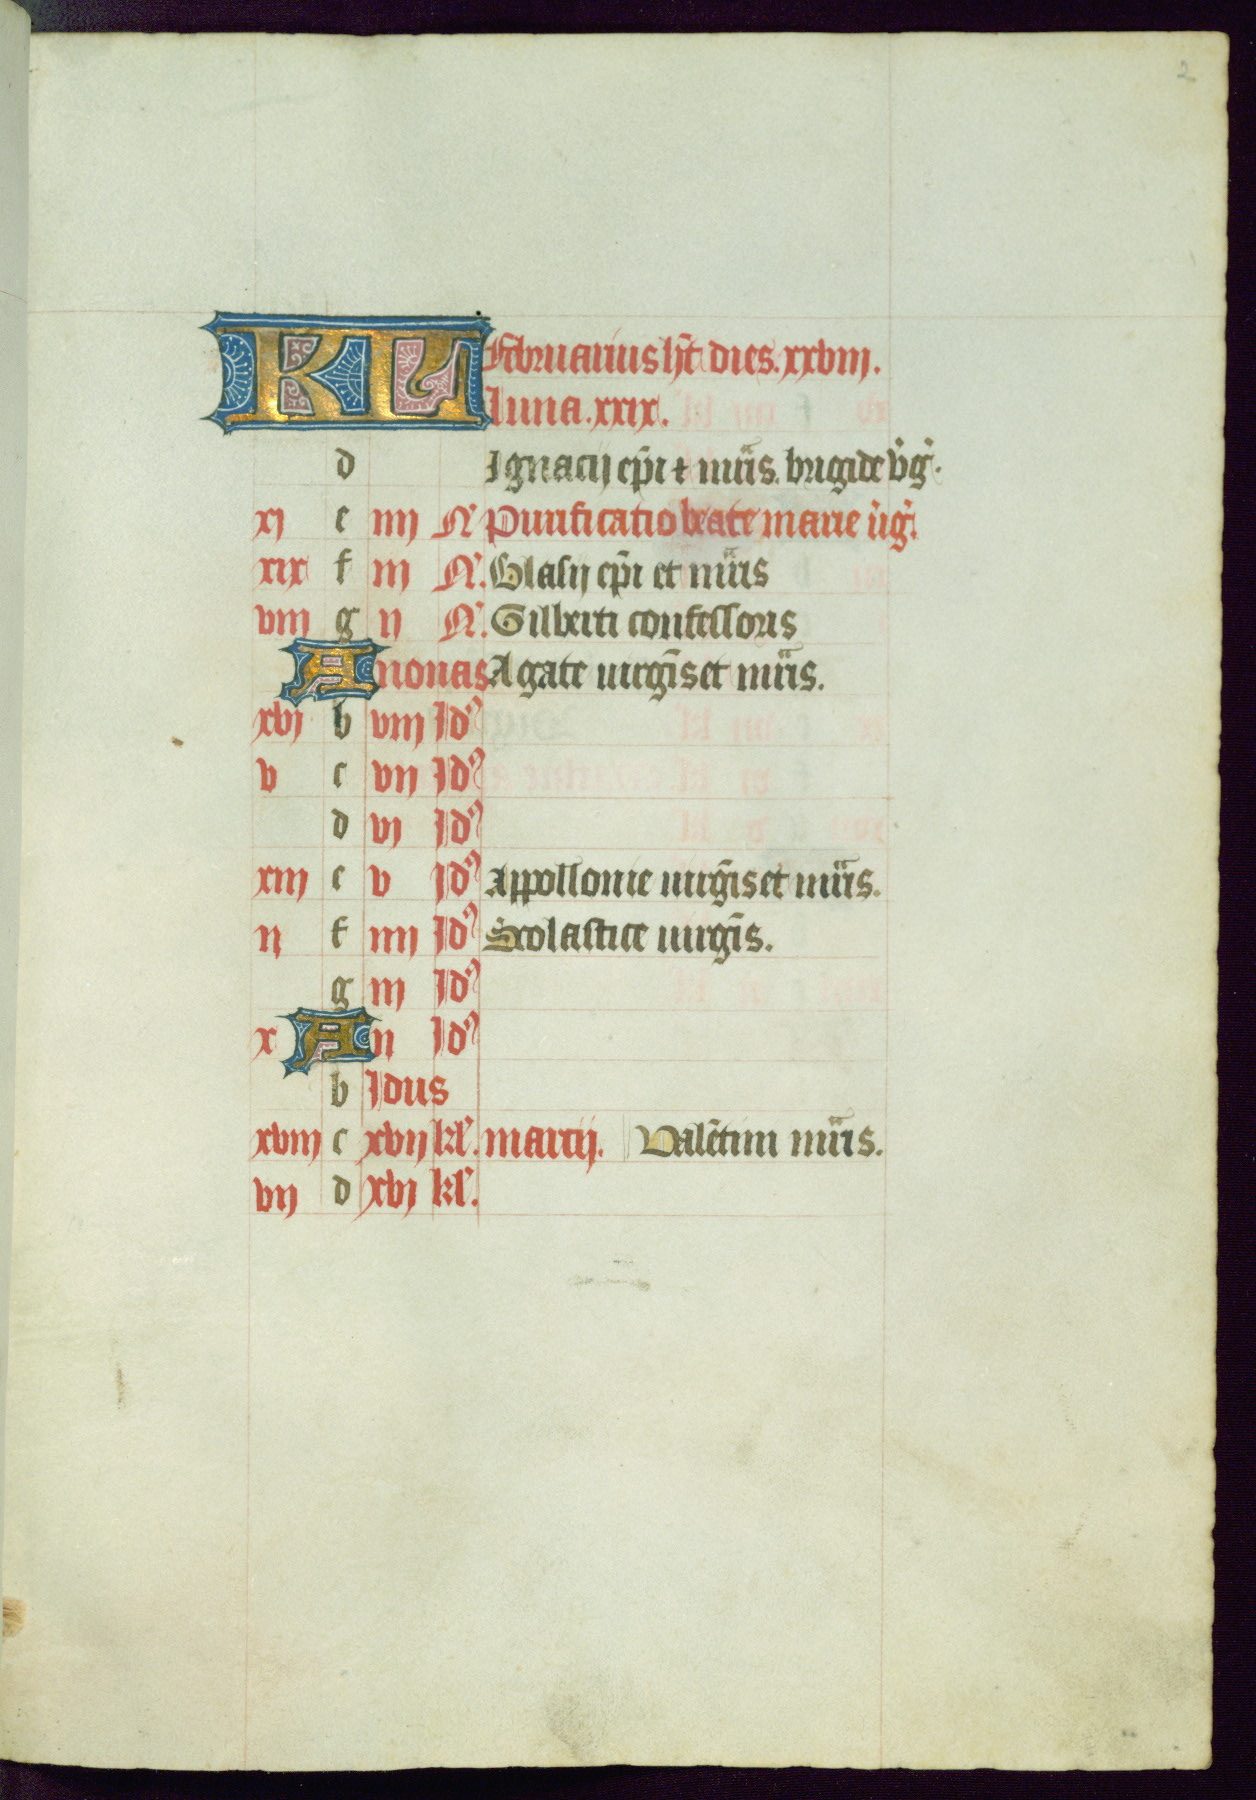 2
KL Februarius hēt dies. xxviij.
luna. xxix.
d Ignacij ep̄i et mr̄is. brigide v̓g̓.
xj e iiij N̓ Purificatio beate marie v̓g̓.
xix f iij N̓. Blasij ep̄i et mr̄is
viij g ij N̓. Gilberti confessoris
A nonas Agate uirgīs et mr̄is.
xvj b viij Idꝰ
v c vij Idꝰ
d vj Idꝰ
xiij e v Idꝰ Appollonie uirgīs et mr̄is.
ij f iiij Idꝰ Scolastice uirgīs.
g iij Idꝰ
x A ij Idꝰ
b Idus
xviij c xvij kl̓. marcij. Valētini mr̄is.
vij d xvj kl̓.